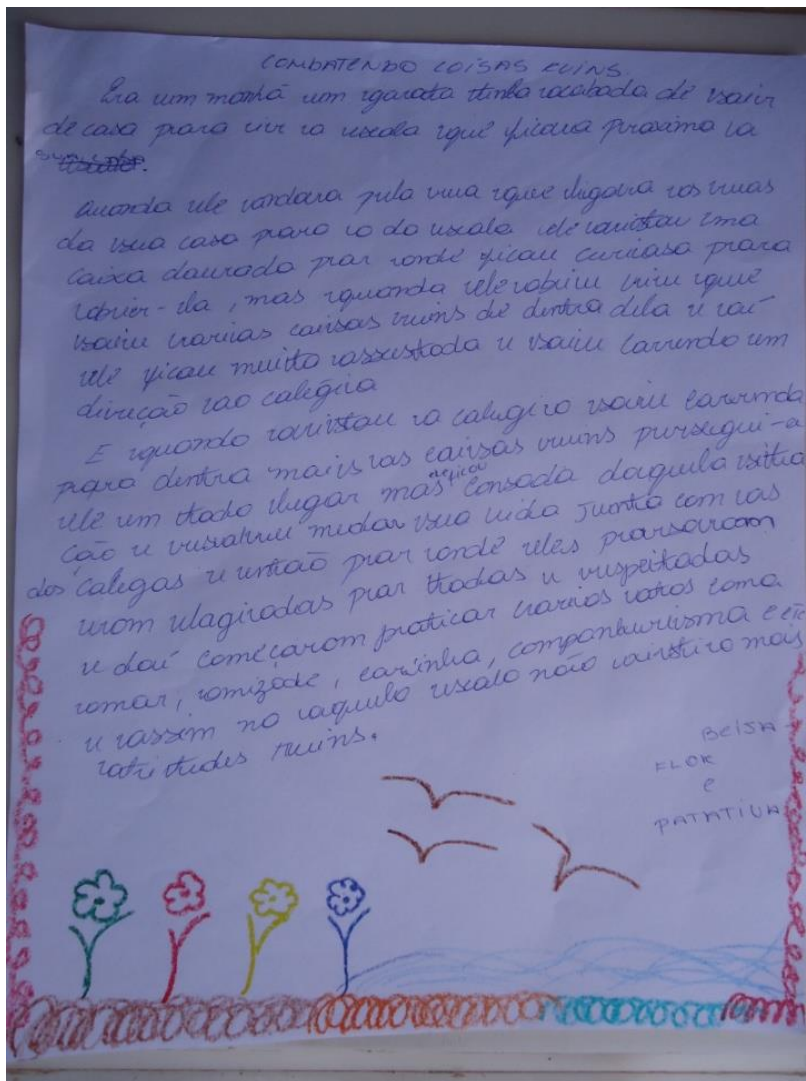 COMBATENDO COISAS RUINS.
Era um manhã um garoto tinha acabado de sair
de casa para ir a escola que ficava proximo a
sua casa.
Quando ele andava pela rua que ligava as ruas
da sua casa para a da escola ele avistou uma
caixa daurada por onde ficou curioso para
abrir-la, mas quando ele abriu viu que
saiu varias coisas ruins de dentro dela e aí
ele ficou muito assustado e saiu correndo em
direção ao colégio
E quando avistou o colegio saiu correndo
para dentro mais as coisas ruins persegui-a
ele em todo lugar mas ele ficou cansado daquela situa
ção e resolveu mudar sua vida junto com as
dos colegas e então por onde eles passavam
erom elogiados por todos e respeitados
e daí começarom praticar varios atos como
amar, amizade, carinho, companheirismo e etc
e assim no aquela escola não existiro mais
atitudes ruins.
BEIJA-
FLOR
e
PATATIVA